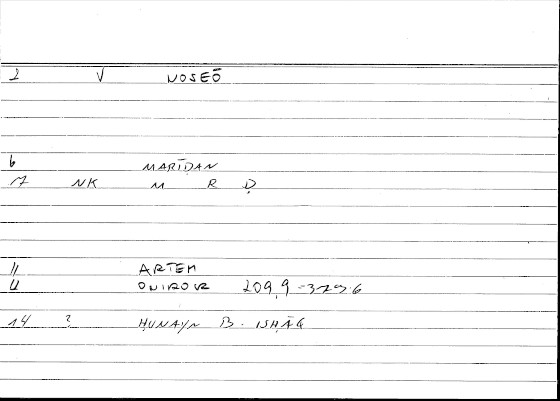 1 V NOSEŌ
6 MARĪḌAN
17 NK M R Ḍ
11 ARTEM
11 ONIROCR 209,9 - 329.6
14 ? ḤUNAYN B. ISḤĀQ